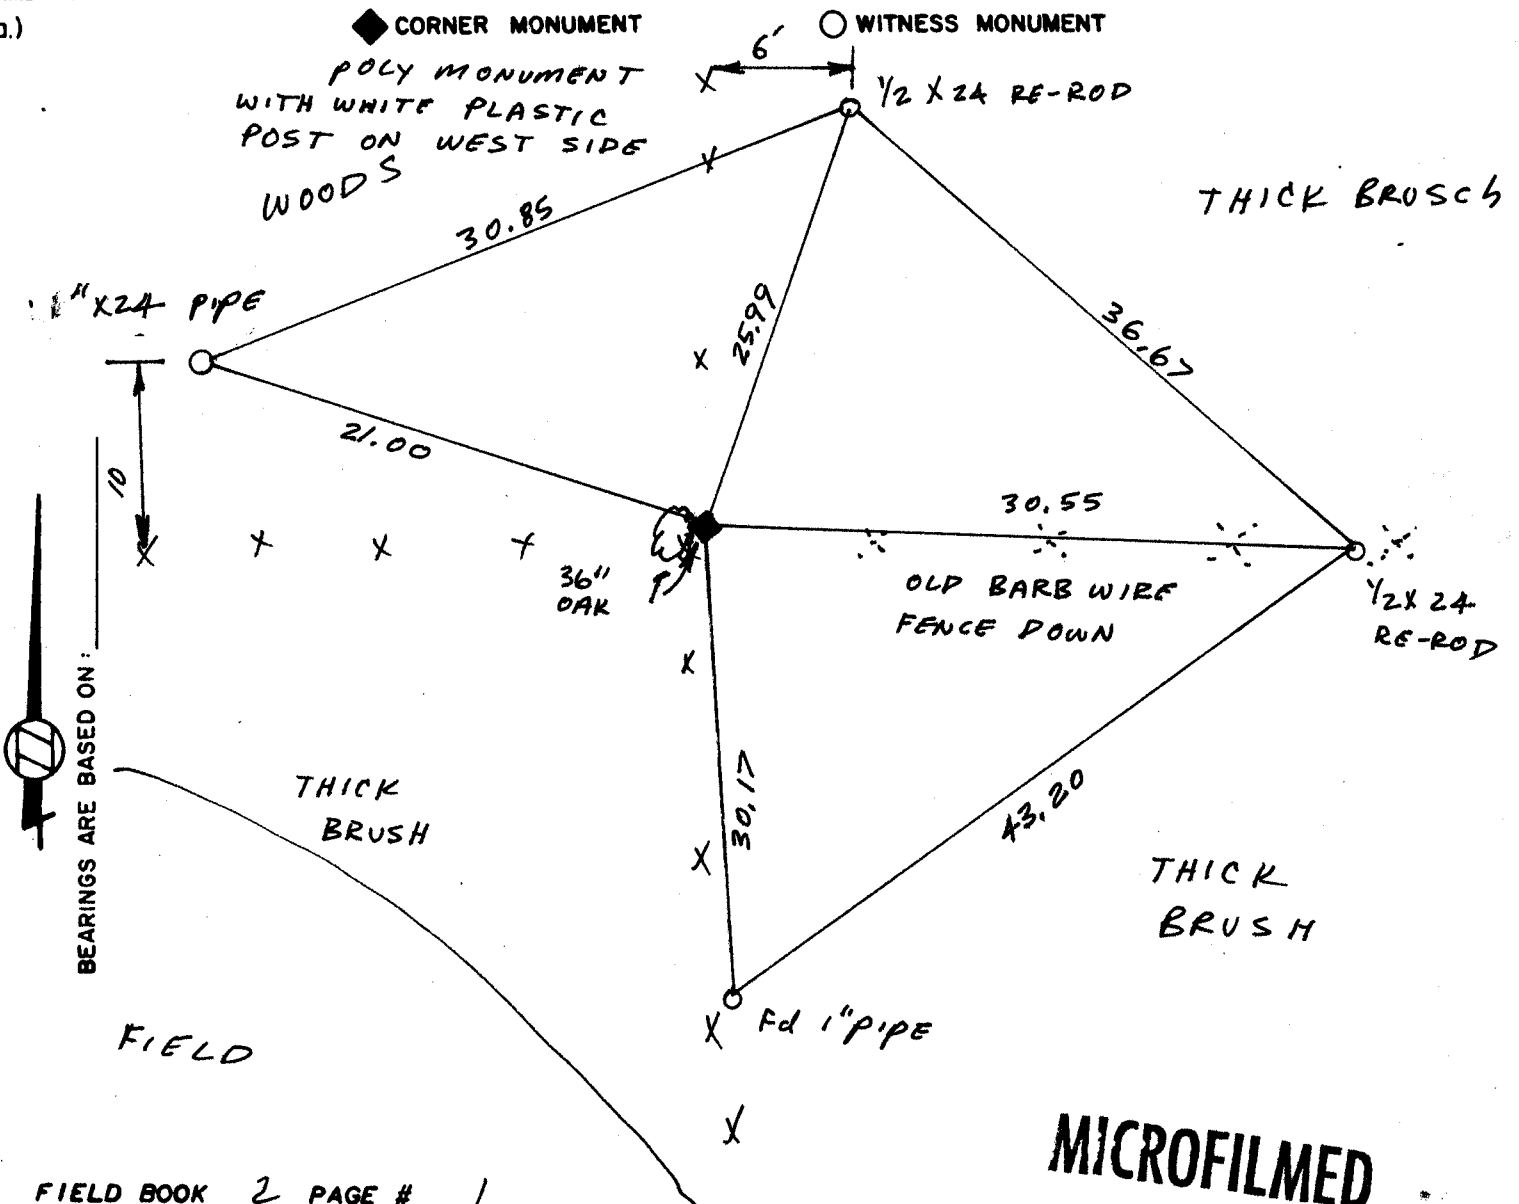 CORNER MONUMENT
WITNESS MONUMENT
6'
POLY MONUMENT
WITH WHITE PLASTIC
POST ON WEST SIDE
1/2 X 24 RE-ROD
WOODS
THICK BRUSCH
30.85
1" X24 PIPE
25.99
36.67
21.00
10
30.55
36"
OAK
OLD BARB WIRE
FENCE DOWN
1/2 X 24
RE-ROD
BEARINGS ARE BASED ON:
THICK
BRUSH
30.17
43.20
THICK
BRUSH
Fd 1" PIPE
FIELD
MICROFILMED
FIELD BOOK 2 PAGE # 1